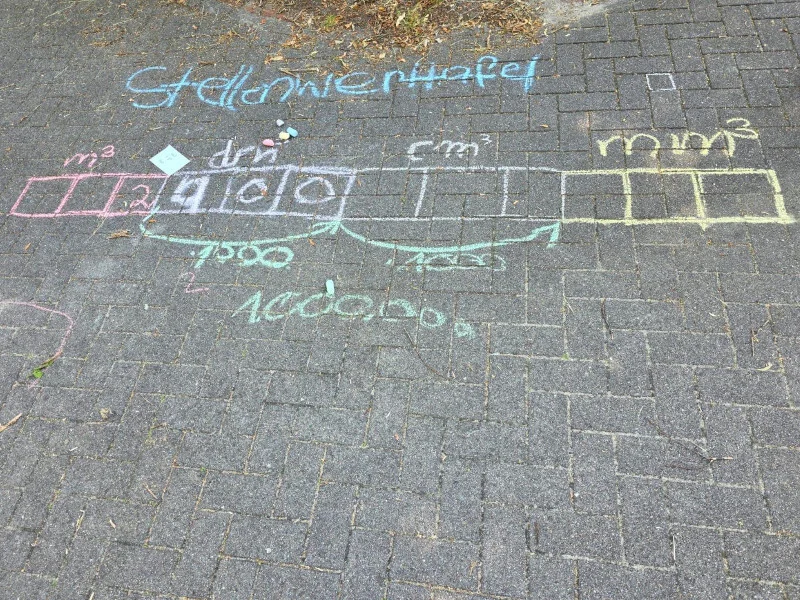 Stellenwerttafel
m³ dm³ cm³ mm³
2 4 0 0
1000 1000
2
1.000.000